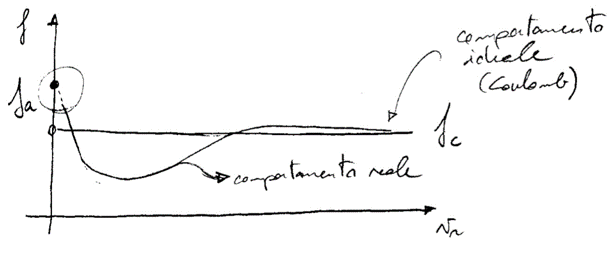 f
comportamento
ideale
(Coulomb)
fa
fc
comportamento reale
vr